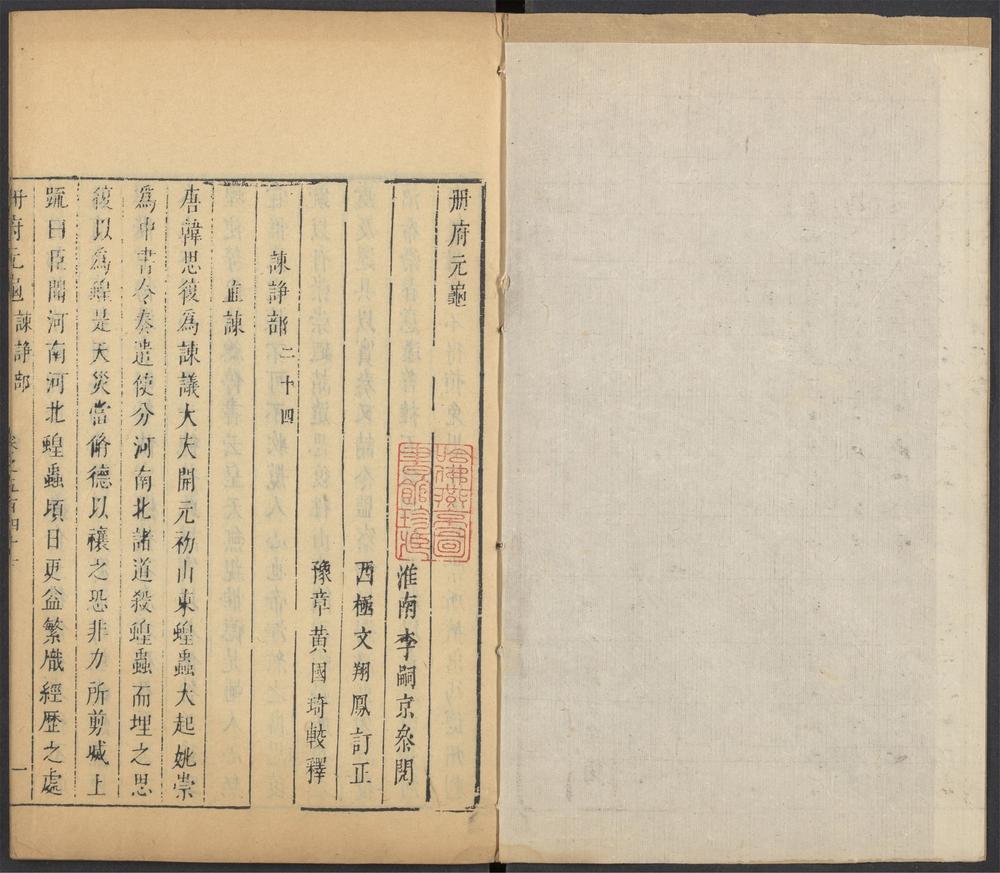 册府元龜
淮南李嗣京叅閱
西極文翔鳳訂正
豫章黃國琦較釋
諫諍部二十四
直諫
唐韓思復為諫議大夫開元初山東蝗蟲大起姚崇
為中書令奏遣使分河南北諸道殺蝗蟲而埋之思
復以為蝗是天災當脩德以禳之恐非力所剪滅上
疏曰臣聞河南河北蝗蟲頃日更益繁熾經歷之處
册府元龜 諫諍部 卷之五百四十 一
哈佛燕京圖
書館珍藏